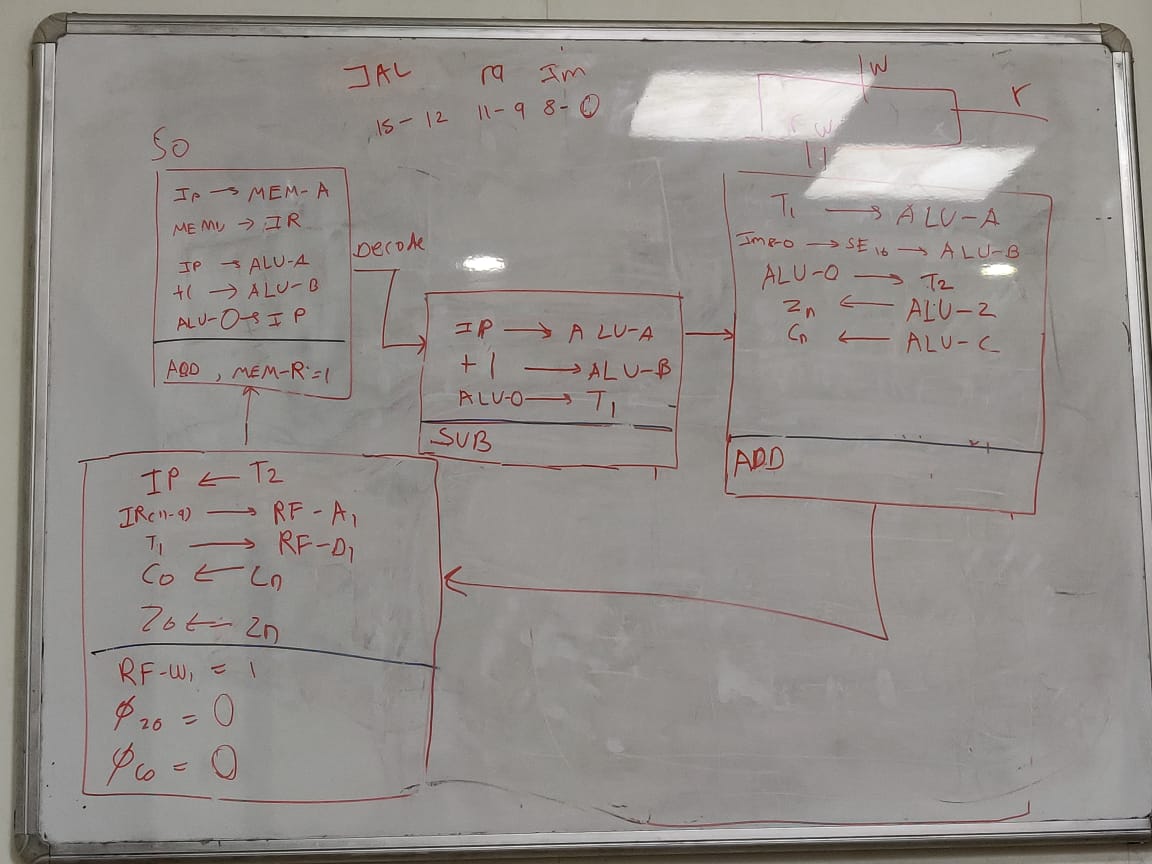 JAL ra Im
15-12 11-9 8-0
W
r
r w
S0
IP → MEM-A
→ IR
IP → ALU-A
+1 → ALU-B
ALU-O → IP
ADD, MEM-R=1
Decode
IP → ALU-A
+1 → ALU-B
ALU-O → T1
SUB
T1 → ALU-A
Im8-0 → SE16 → ALU-B
ALU-O → T2
Zn ← ALU-Z
Cn ← ALU-C
ADD
IP ← T2
IR(11-9) → RF-A1
T1 → RF-D1
C0 ← Cn
Z0 ← Zn
RF-W1 = 1
φZ0 = 0
φC0 = 0